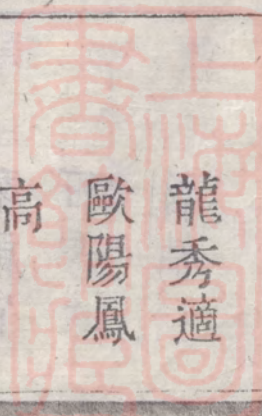 龍秀適
歐陽鳳
高
上海圖
書館藏